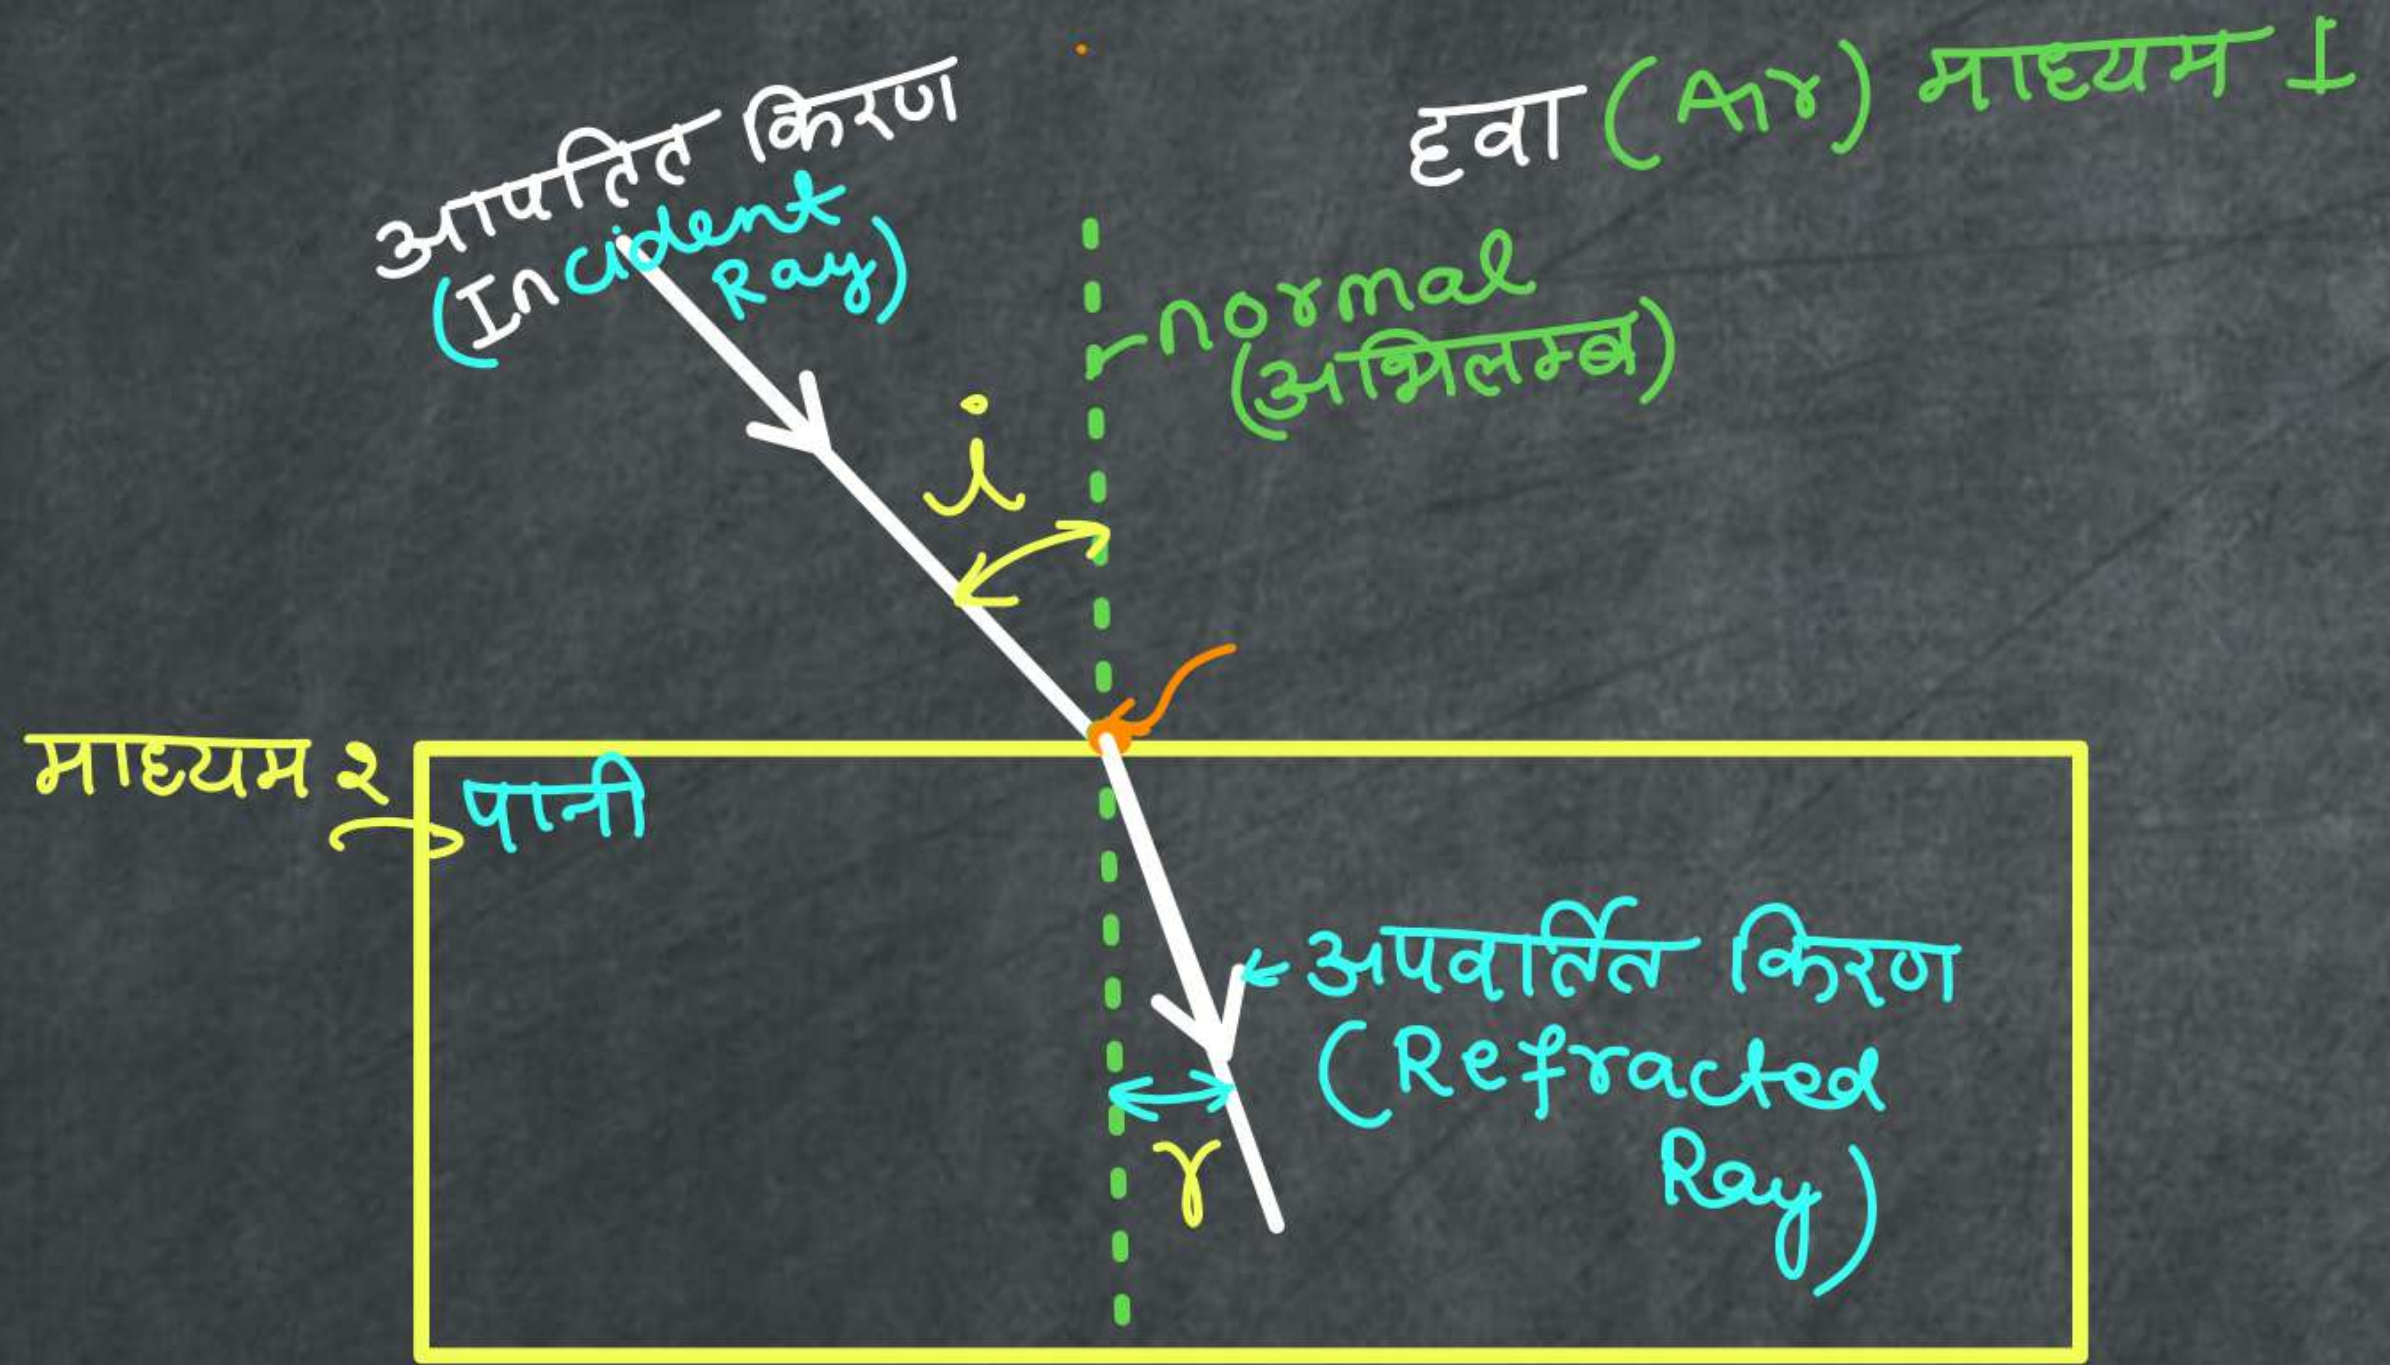 आपतित किरण
(Incident
Ray)
हवा (Air) माध्यम I
normal
(अभिलम्ब)
i
माध्यम २
पानी
अपवर्तित किरण
(Refracted
Ray)
r